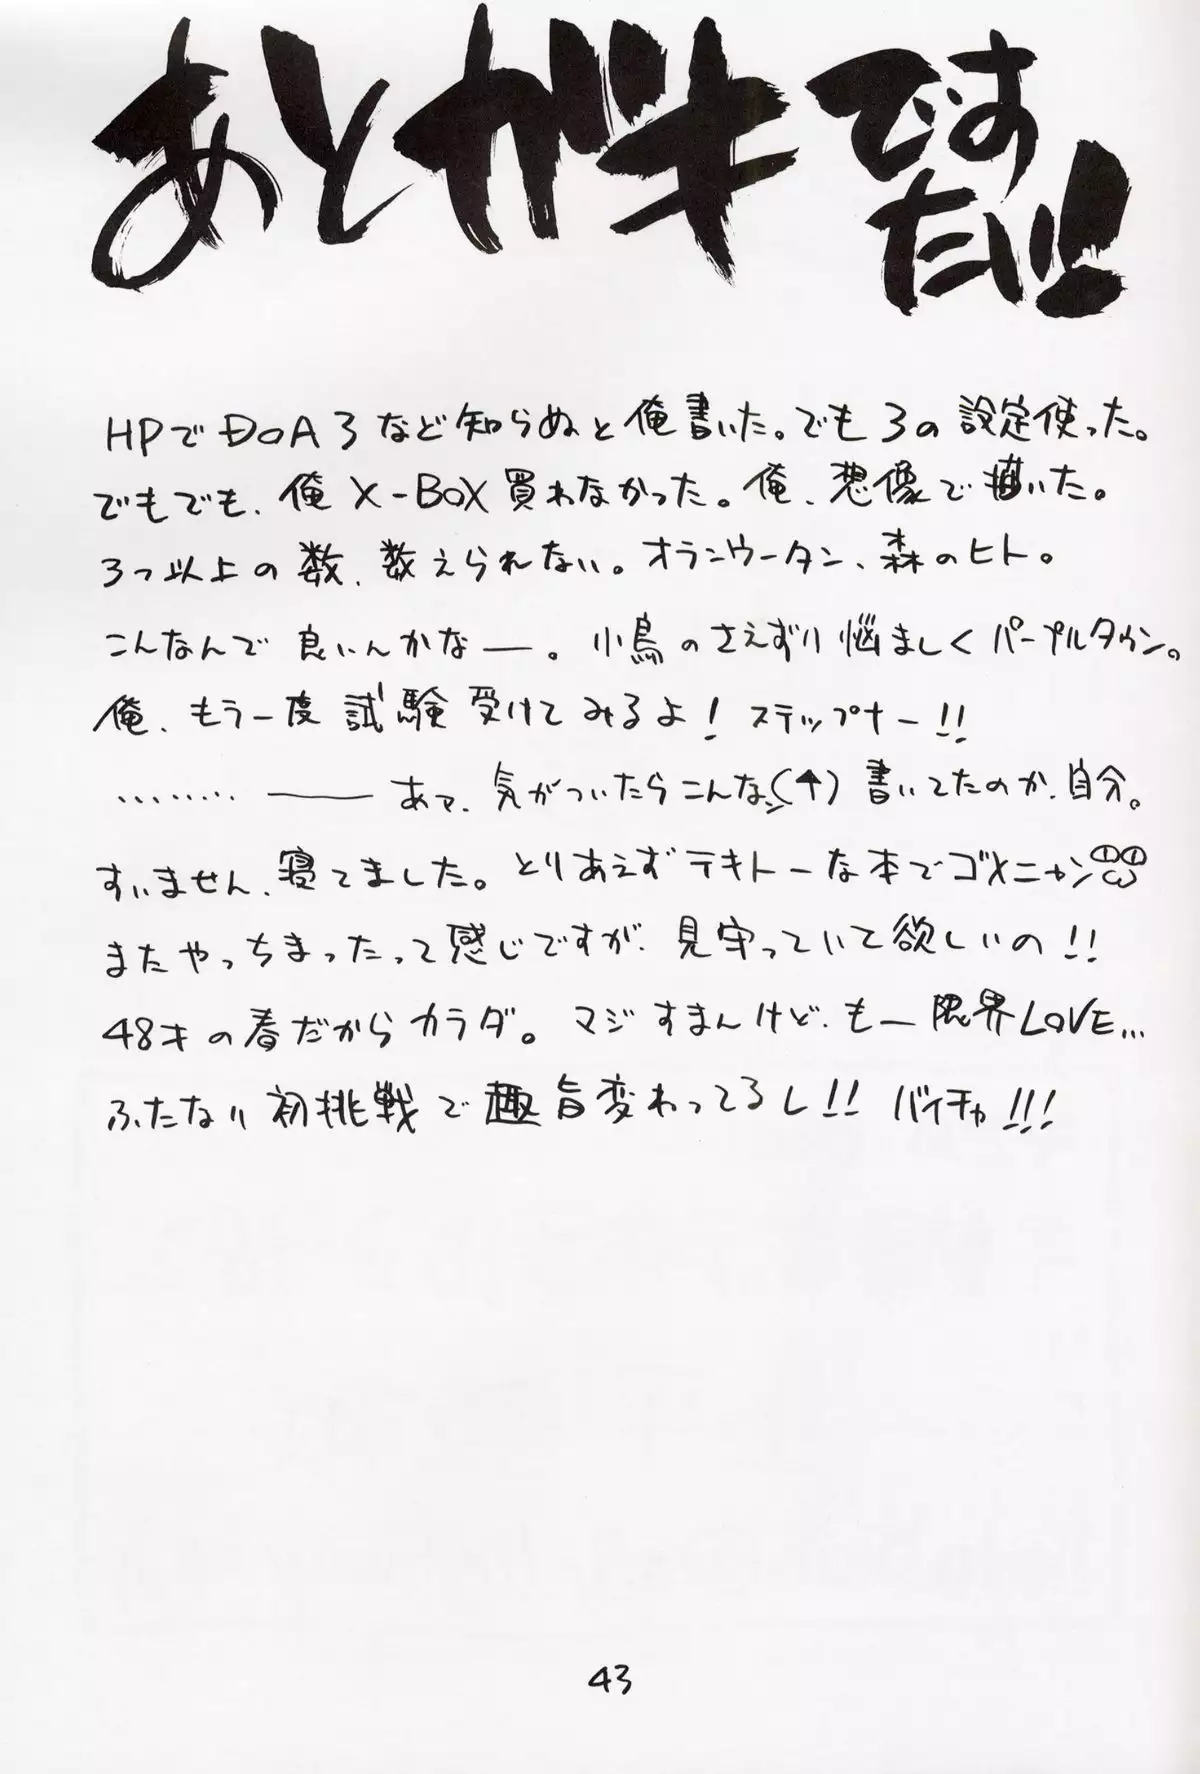 あとがキですたい!!
HPでDOA3など知らぬと俺書いた。でも3の設定使った。
でもでも、俺X-BOX買わなかった。俺、想像で描いた。
3つ以上の数、数えられない。オランウータン、森のヒト。
こんなんで良いんかなー。小鳥のさえずり悩ましくパープルタウン。
俺、もう一度試験受けてみるよ!ステップナー!!
………──あっ、気がついたらこんな(↑)書いてたのか、自分。
すいません、寝てました。とりあえずテキトーな本でゴメニャン
またやっちまったって感じですが、見守っていて欲しいの!!
48才の春だからカラダ。マジすまんけど、もー限界LOVE…
ふたなり初挑戦で趣旨変わってるし!!バイチャ!!!
43